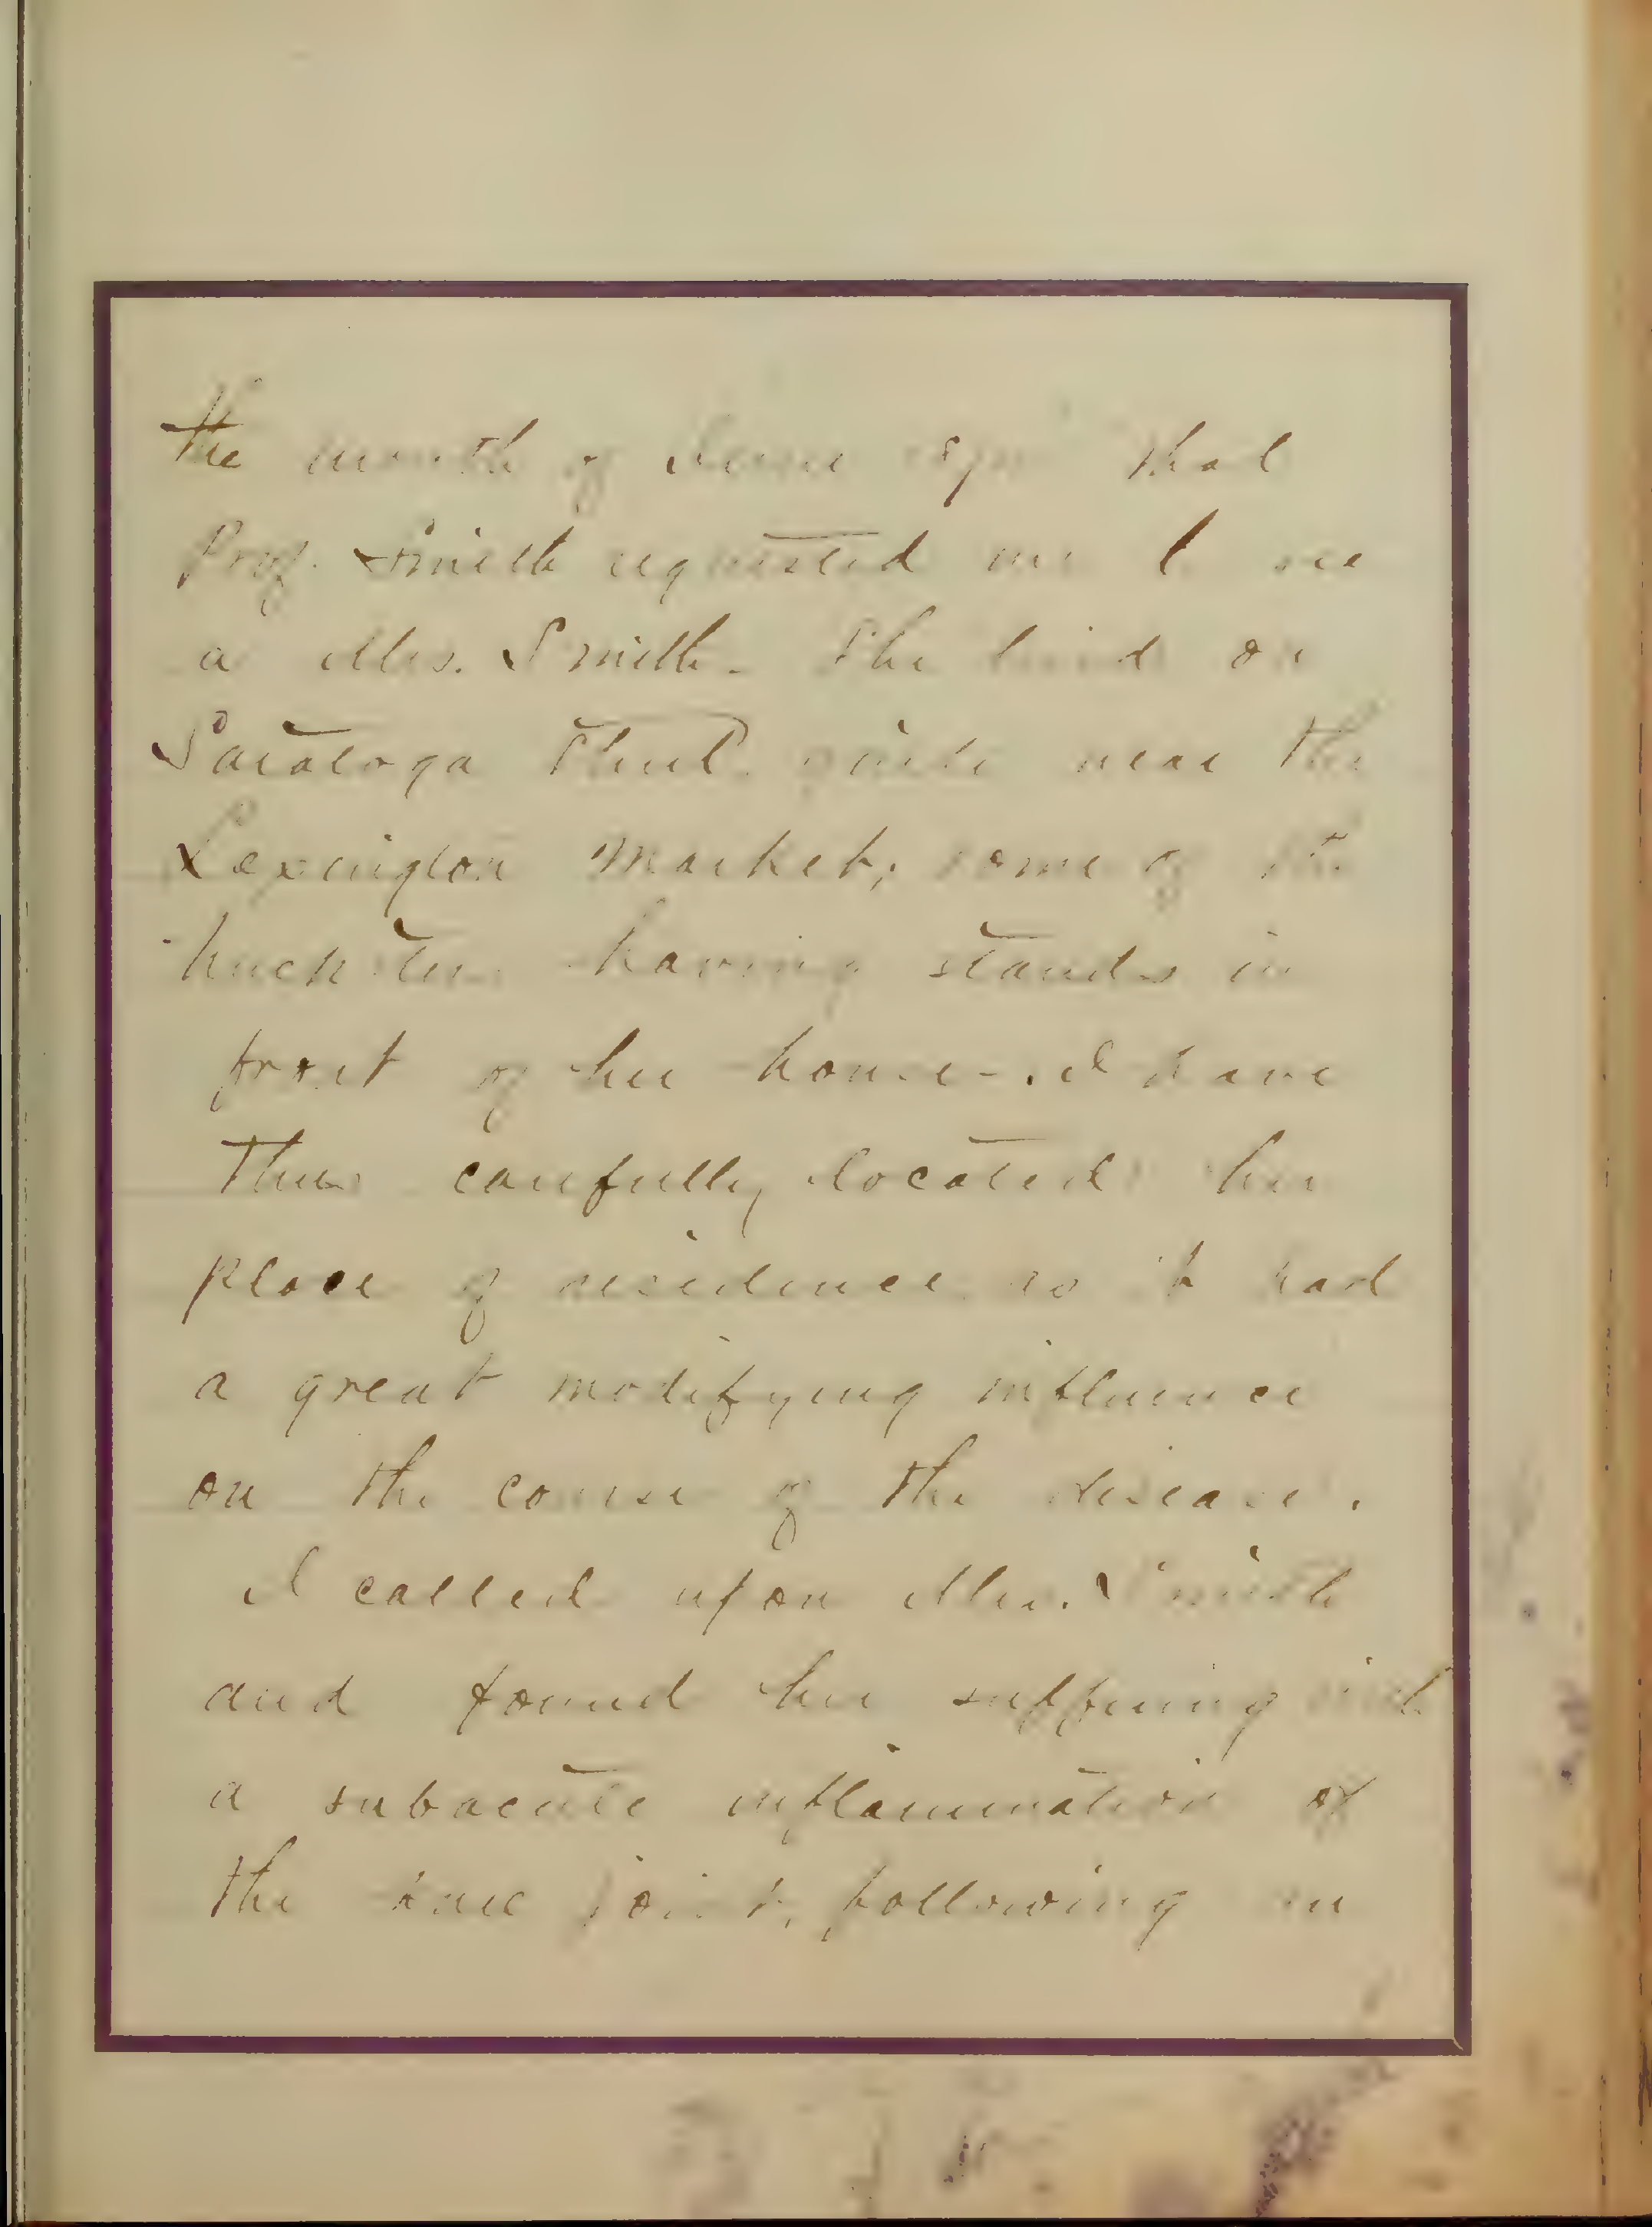 the month of June 1870 that
Prof. Smith requested me to see
a Mrs. Smith. She lived on
Saratoga Street quite near the
Lexington Market, some of the
hucksters having stands in
front of her house. I have
thus carefully located her
place of residence as it had
a great modifying influence
on the course of the disease.
I called upon Mrs. Smith
and found her suffering with
a subacute inflammation of
the knee joint, following an